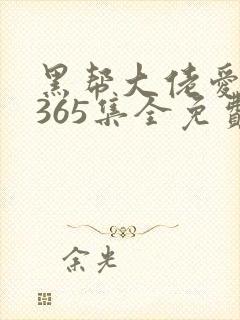 黑帮大佬爱
365集全免费
余光